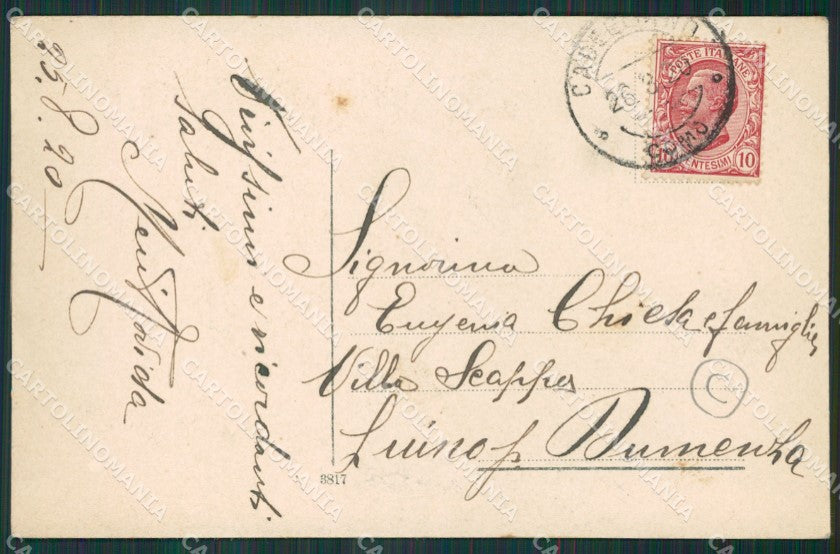 25.8.20
Vivissimi e ricordanti
saluti
CADREZZATE
POSTE ITALIANE
CENTESIMI 10
Signorina
Eugenia Chiesa e famiglia
Villa Scappa
Luino p. Dumenza
C
3817
CARTOLINOMANIA